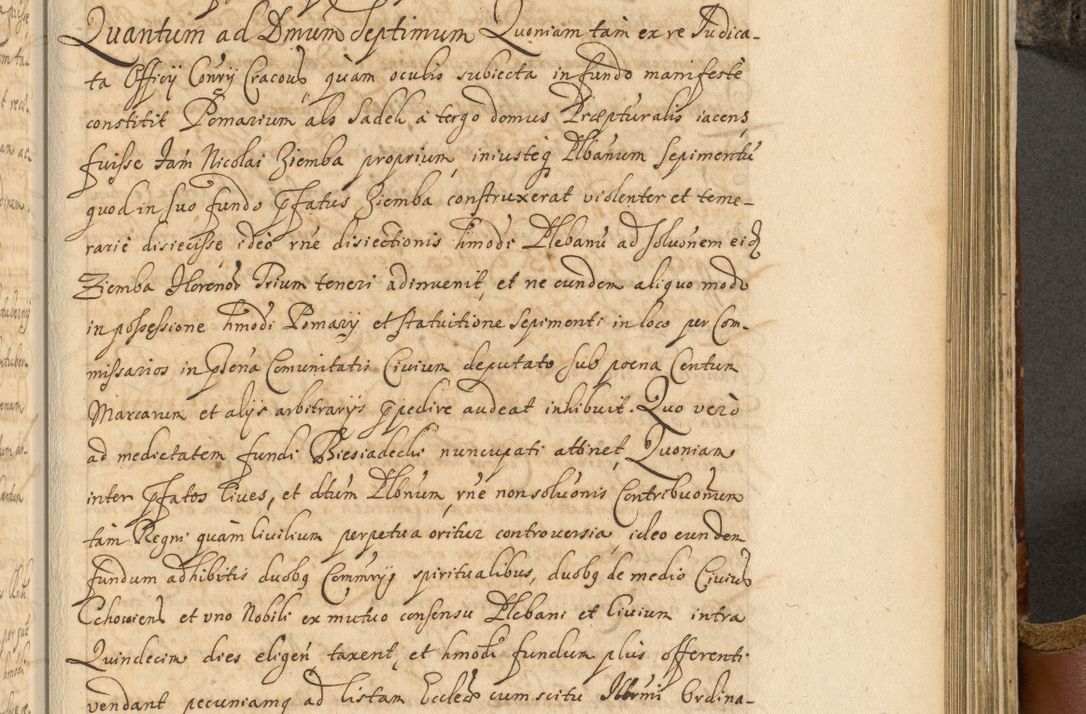 Quantum ad Dmum Septimum Quoniam tam ex re Judica-
ta Officij Conrij Cracous quam oculis subiecta in fundo manifestè
constitit Pomarium als Sadek à tergo domus Præpturalis iacens
fuisse Fam Nicolai Ziemba proprium iniusteq Plbanum Sepimentū
quod in suo fundo Pfatus Ziemba construxerat violenter et teme-
rariè disiecisse ideo rne disiectionis hmodi Plebanū ad solvonem eid
Ziemba Florenos Trium teneri adinvenit, et ne eundem aliquo modo
in possessione hmodi Pomarij et statuitione Sepimenti in loco per Com-
missarios in Plena Comunitatis Civium deputato sub poena Centum
Marcarum et alijs arbitrarijs Ppedire audeat inhibuit. Quo verò
ad medietatem fundi Biesiadecki nuncupati attinet, Quoniam
inter Pfatos Cives, et dtum Plbnum, rne non solvonis Contribuonum
tam Regni quam Civilium perpetua oritur controversia, ideo eundem
fundum adhibitis duobq Commrijs spiritualibus, duobq de medio Civium
Tchoviens et uno Nobili ex mutuo consensu Plebani et Civium intra
Quindecim dies eligen taxent, et hmodi fundum plus offerenti
vendant pecuniamq ad Cistam Eccleæ cum scitu Illrmi Ordina-